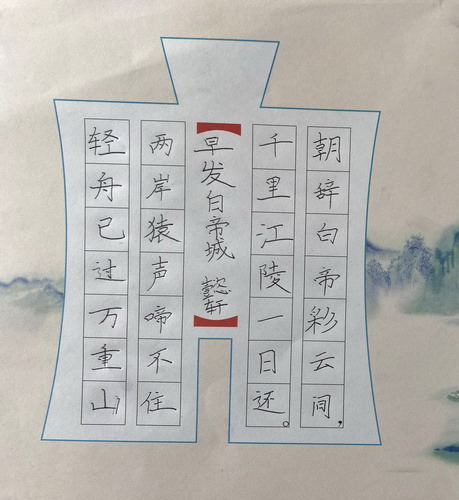 朝辞白帝彩云间，
千里江陵一日还。
早发白帝城 懿轩
两岸猿声啼不住
轻舟已过万重山